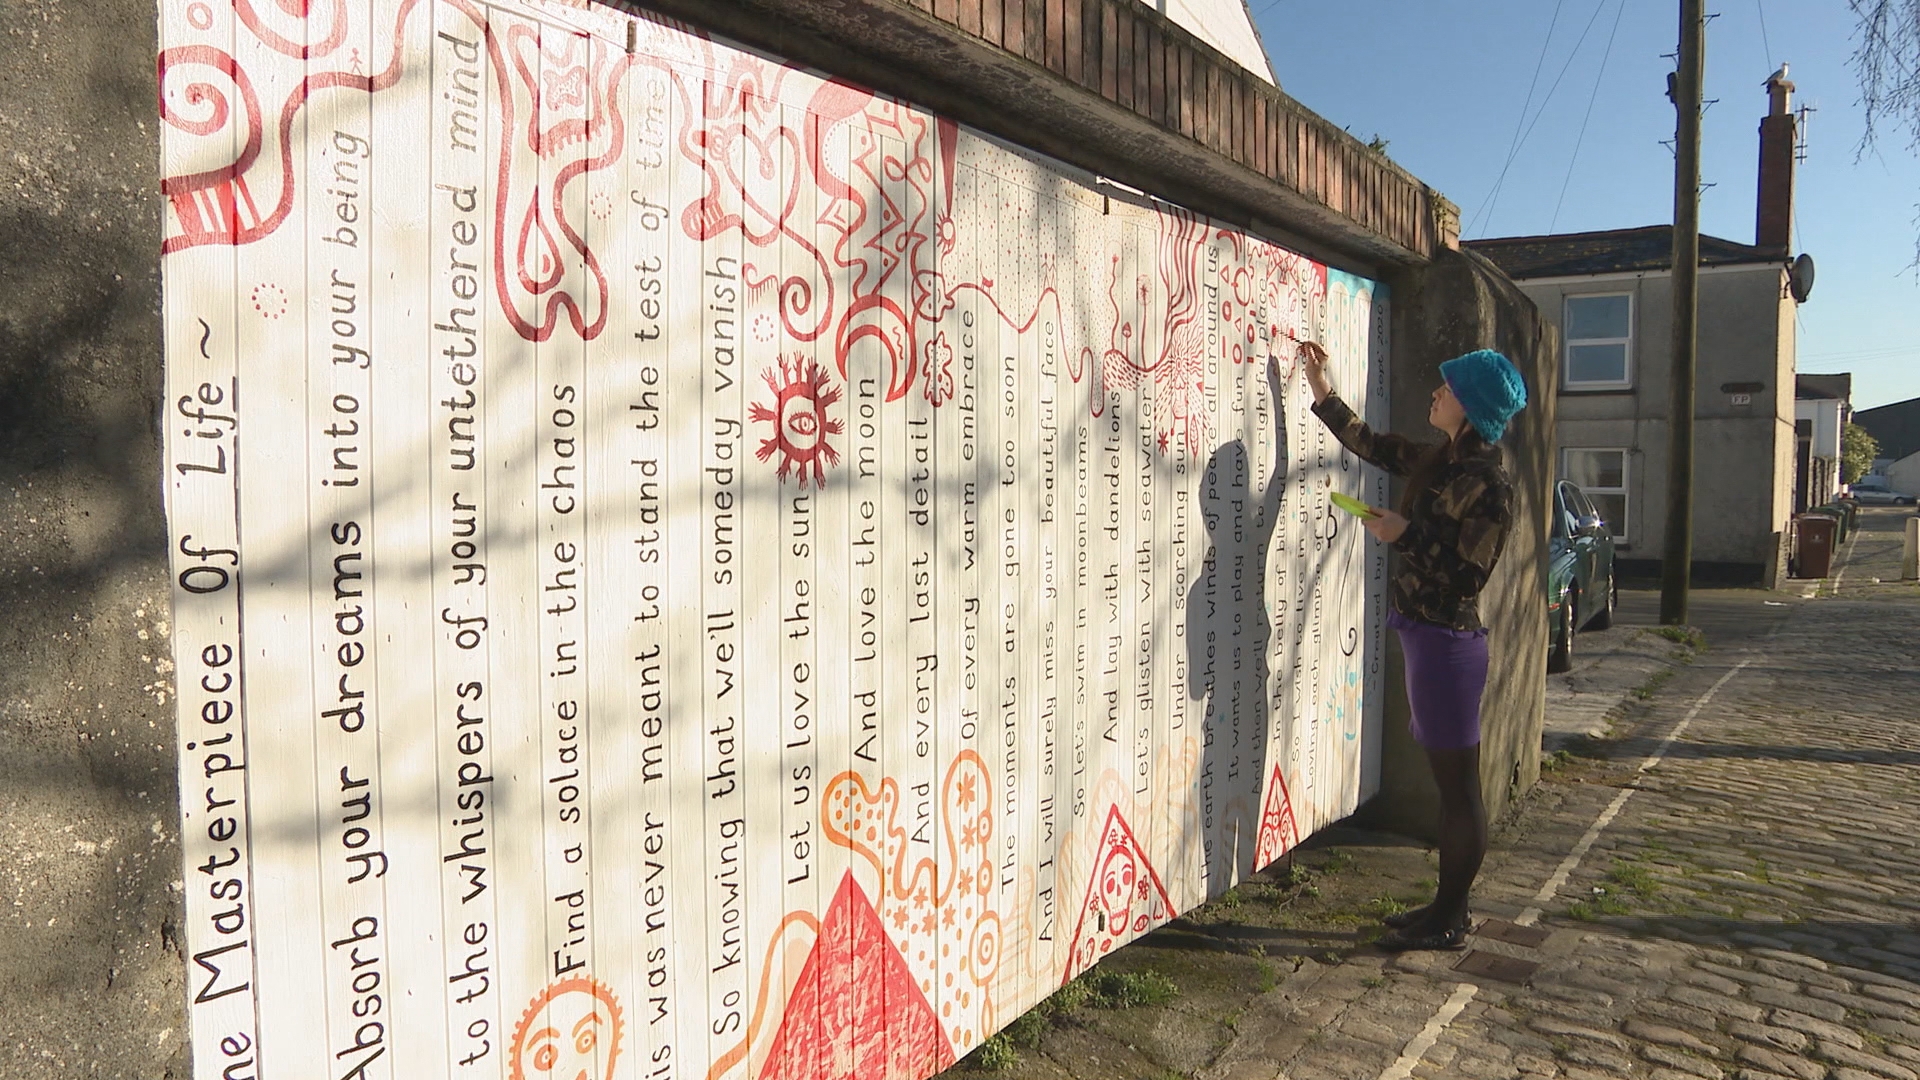 Masterpiece Of Life ~
Absorb your dreams into your being
to the whispers of your untethered mind
Find a solace in the chaos
was never meant to stand the test of time
So knowing that we'll someday vanish
Let us love the sun
And love the moon
And every last detail
Of every warm embrace
The moments are gone too soon
And I will surely miss your beautiful face
So let's swim in moonbeams
And lay with dandelions
Let's glisten with seawater
Under a scorching sun
The earth breathes winds of peace all around us
It wants us to play and have fun
And then we'll return to our rightful place
In the belly of blissful
So I wish to live in gratitude
Loving each glimpse of this
~ Created by
Sept 2020
FP